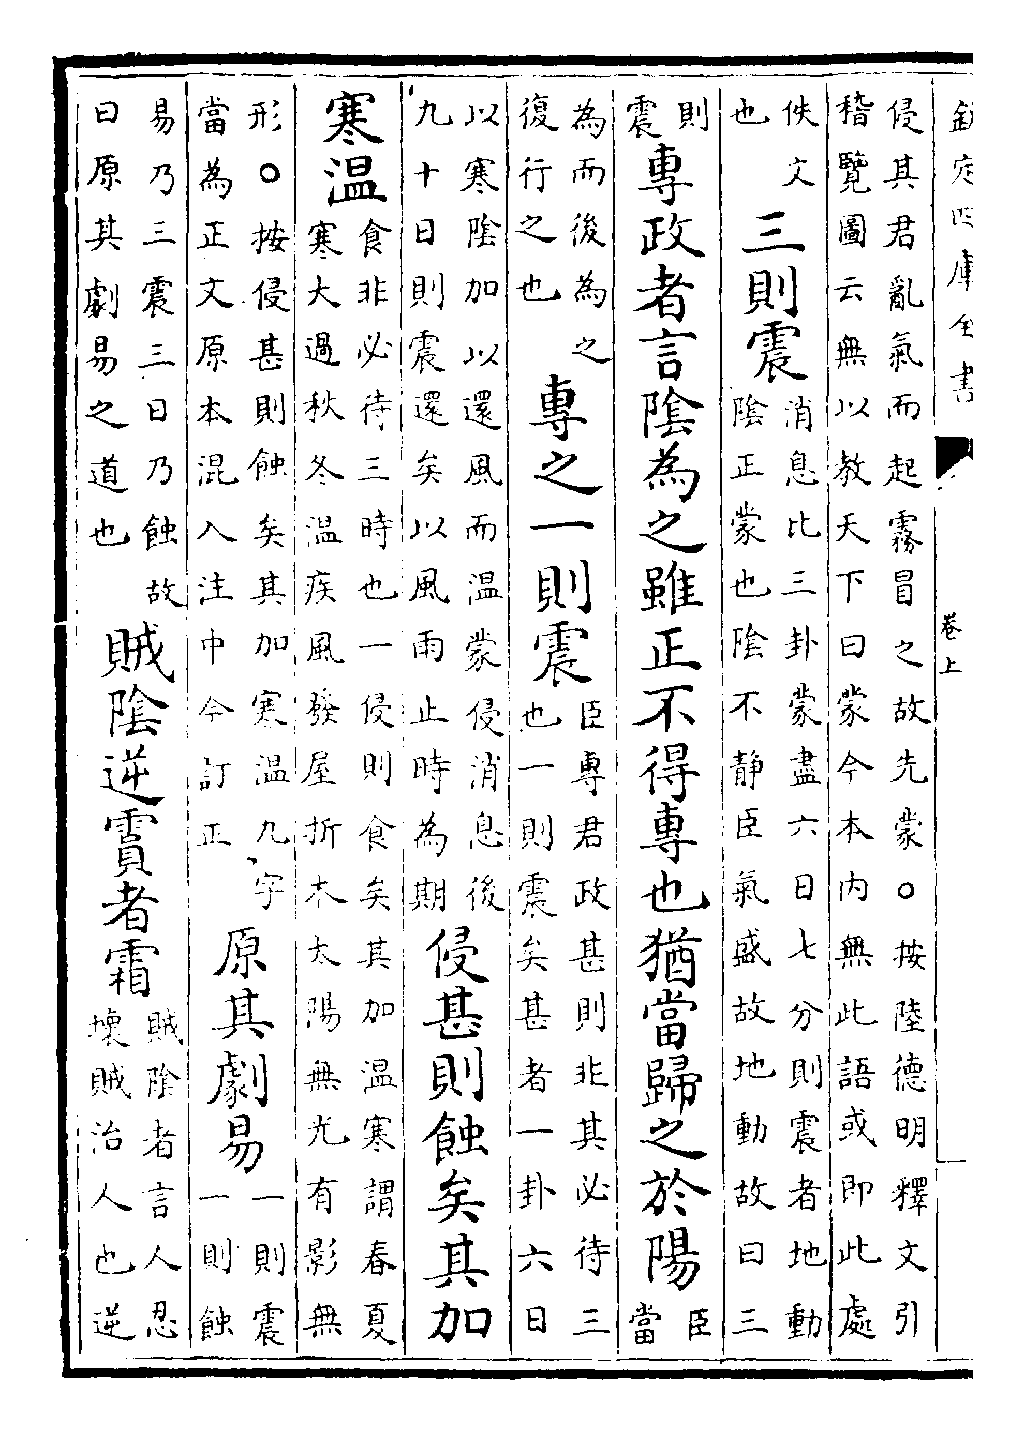 欽定四庫全書 卷上
侵其君亂氣而起霧冒之故先蒙○按陸德明釋文引
稽覽圖云無以教天下曰蒙今本内無此語或即此處
佚文
也
三則震
消息比三卦蒙盡六日七分則震者地動
陰正蒙也陰不静臣氣盛故地動故曰三
則
震
專政者言陰為之雖正不得專也猶當歸之於陽
臣
當
為而後為之
復行之也
專之一則震
臣專君政甚則非其必待三
也一則震矣甚者一卦六日
以寒陰加以還風而温蒙侵消息後
九十日則震還矣以風雨止時為期
侵甚則蝕矣其加
寒温
食非必待三時也一侵則食矣其加温寒謂春夏
寒大過秋冬温疾風發屋折木太陽無光有影無
形○按侵甚則蝕矣其加寒温九字
當為正文原本混入注中今訂正
原其劇易
一則震
一則蝕
易乃三震三日乃蝕故
曰原其劇易之道也
賊陰逆霣者霜
賊陰者言人忍
壞賊治人也逆